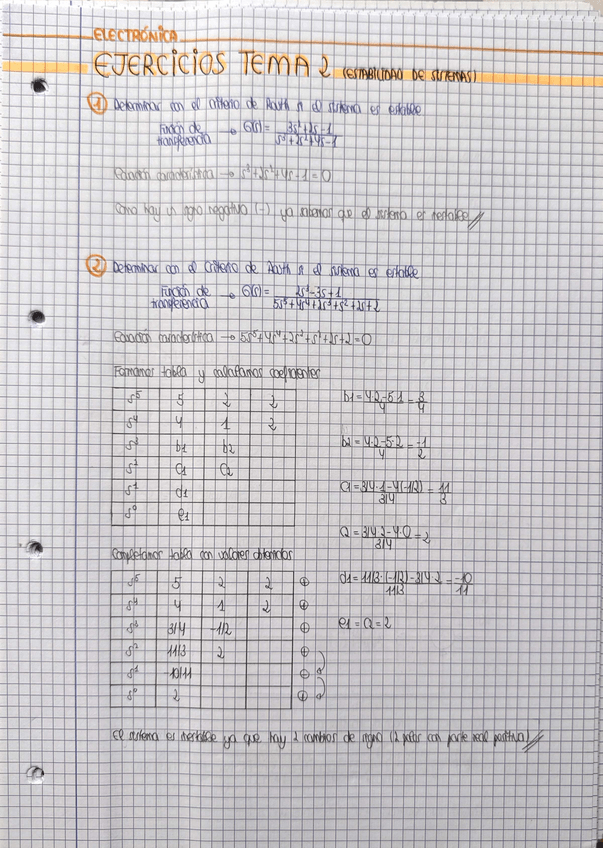 ELECTRÓNICA
EJERCICIOS TEMA 2 (ESTABILIDAD DE SISTEMAS)
① Determinar con el criterio de Routh si el sistema es estable
Función de transferencia → G(s) = (3s²+2s-1)/(s³+2s²+4s-1)
Ecuación característica → s³+2s²+4s-1=0
Como hay un signo negativo (-) ya sabemos que el sistema es inestable //
② Determinar con el Criterio de Routh si el sistema es estable
Función de transferencia → G(s) = (2s²-3s+1)/(5s⁵+4s⁴+2s³+s²+2s+2)
Ecuación característica → 5s⁵+4s⁴+2s³+s²+2s+2=0
Formamos tabla y calculamos coeficientes
s⁵ 5 2 2
s⁴ 4 1 2
s³ b1 b2
s² c1 c2
s¹ d1
s⁰ e1
b1 = (4·2-5·1)/4 = 3/4
b2 = (4·2-5·2)/4 = -1/2
c1 = (3/4·1-4(-1/2))/(3/4) = 11/3
c2 = (3/4·2-4·0)/(3/4) = 2
d1 = (11/3·(-1/2)-3/4·2)/(11/3) = -10/11
e1 = c2 = 2
Completamos tabla con valores obtenidos
s⁵ 5 2 2 ⊕
s⁴ 4 1 2 ⊕
s³ 3/4 -1/2 ⊕
s² 11/3 2 ⊕
s¹ -10/11 ⊖
s⁰ 2 ⊕
El sistema es inestable ya que hay 2 cambios de signo (2 polos con parte real positiva) //